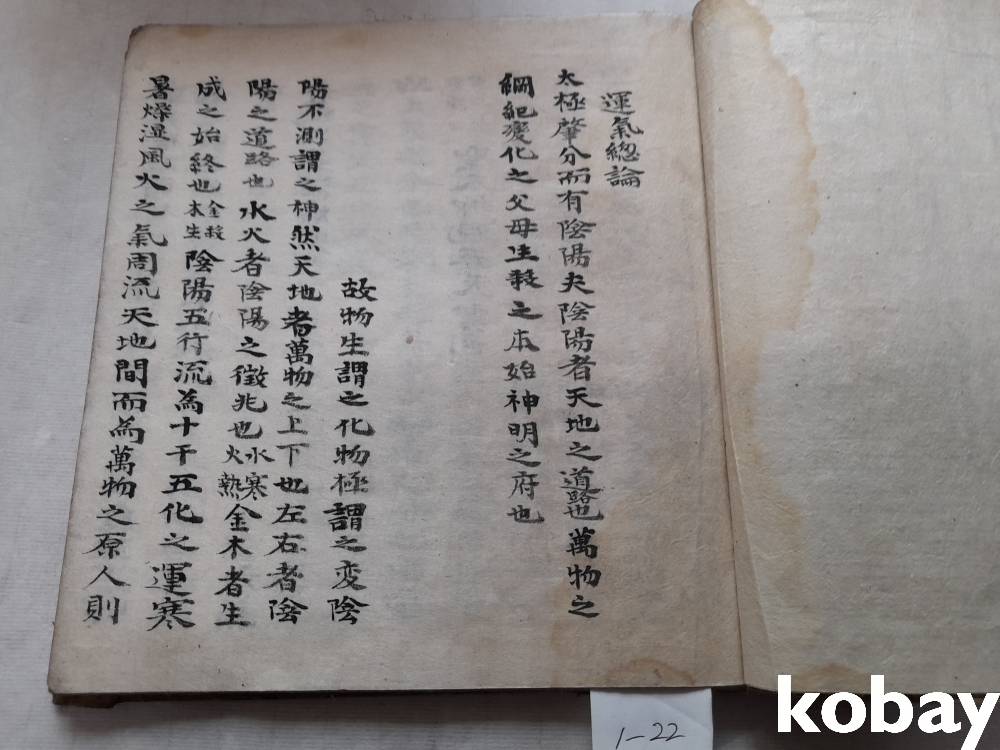 運氣總論
太極肇分而有陰陽夫陰陽者天地之道路也萬物之
綱紀變化之父母生殺之本始神明之府也
故物生謂之化物極謂之変陰
陽不測謂之神然天地者萬物之上下也左右者陰
陽之道路也水火者陰陽之徵兆也水寒火熱金木者生
成之始終也金殺木生陰陽五行流為十干五化之運寒
暑燥湿風火之氣周流天地間而為萬物之原人則
1-22
kobay